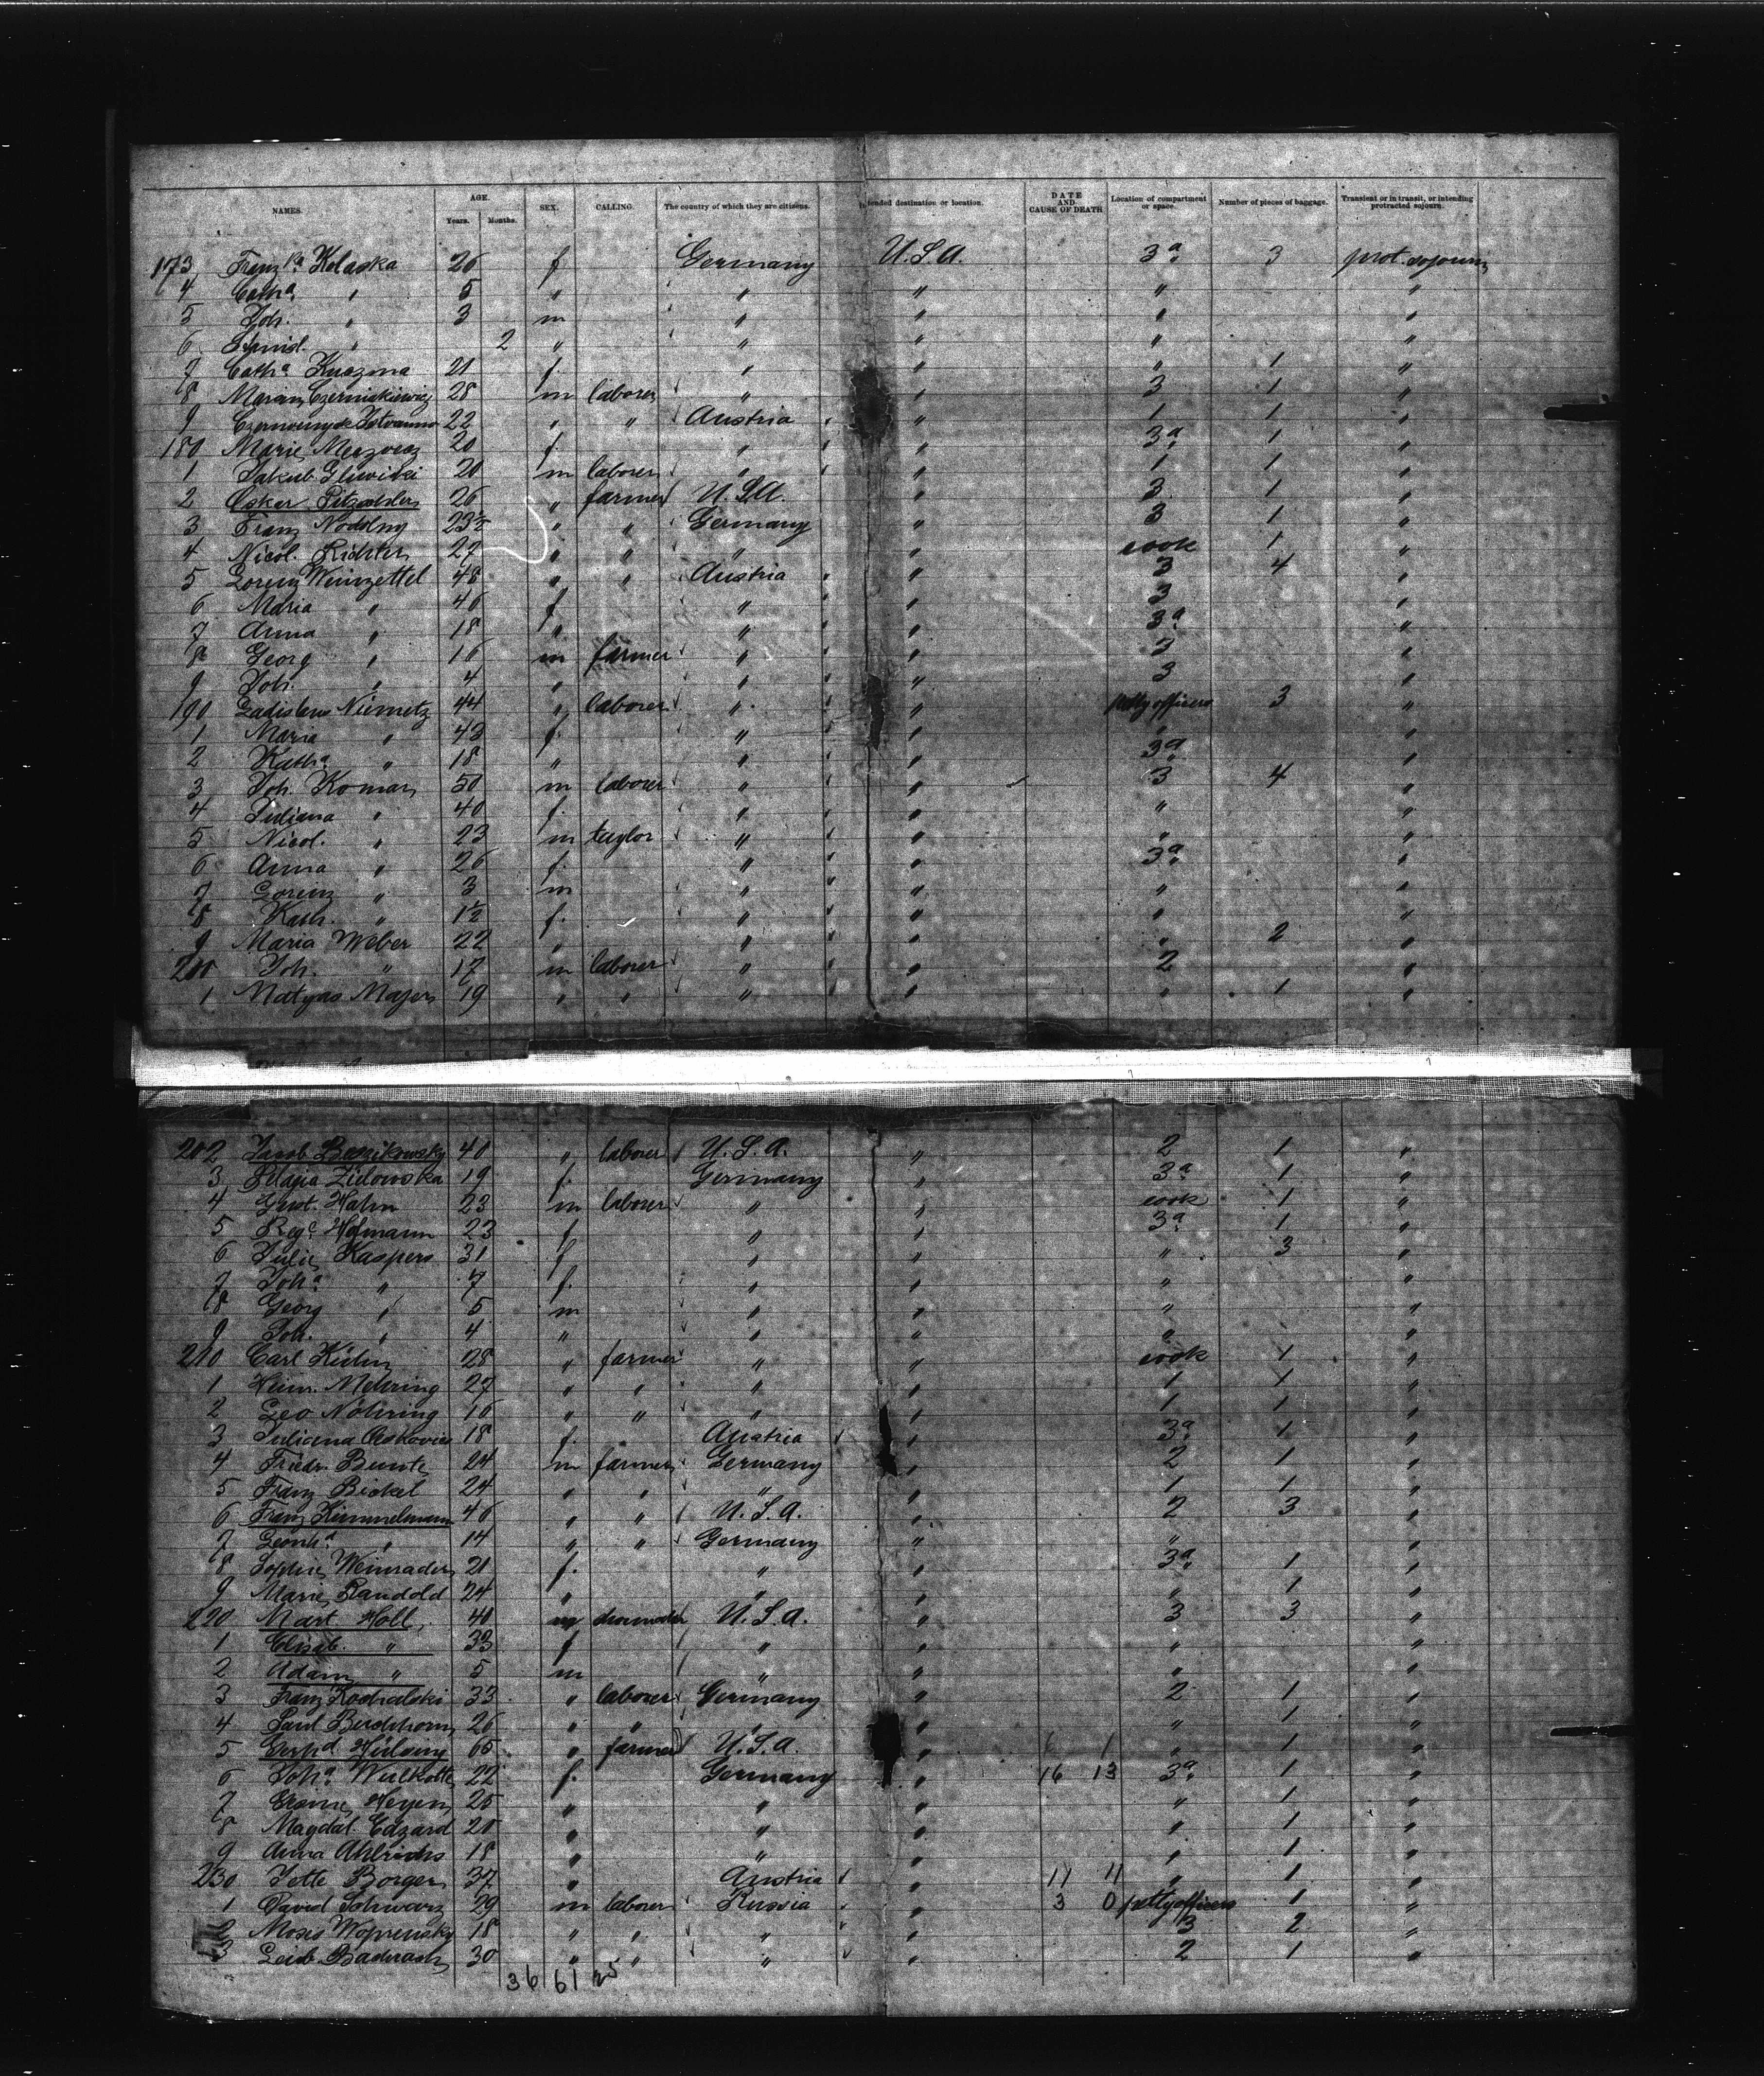 NAMES. AGE. Years. Months. SEX. CALLING. The country of which they are citizens. Intended destination or location. DATE AND CAUSE OF DEATH Location of compartment or space. Number of pieces of baggage. Transient or in transit, or intending protracted sojourn.
173 Franzka Kolaska 26 f Germany U.S.A. 3a 3 prot. sojourn
4 Catha " 5 " " " " "
5 Joh. " 3 m " " " "
6 " 2 " " " " "
7 Catha Kuczma 21 f. " " " 1 "
8 Marian Czerniakiewicz 28 m laborer " " 3 1 "
9 22 " " Austria " 1 1 "
180 Marie 20 f. " " 3a 1 "
1 Jakub Gliwicki 20 m laborer " " 1 1 "
2 Oskar 26 " farmer U.S.A. " 3 1 "
3 Franz Nodolny 23½ " " Germany " 3 1 "
4 Nicol. Richter 27 " " " " cook 1 "
5 Lorenz Weinzettel 48 " " Austria " 3 4 "
6 Maria " 46 f. " " 3 "
7 Anna " 18 " " " 3a "
8 Georg " 16 m farmer " " 3 "
9 Joh. " 4 " " " 3 "
190 Ladislaus Niemetz 44 " laborer " " petty officers 3 "
1 Maria " 43 f. " " " "
2 Katha " 18 " " " 3a "
3 Joh. Komar 50 m laborer " " 3 4 "
4 Juliana " 40 f. " " " "
5 Nicol. " 23 m taylor " " " "
6 Anna " 26 f. " " 3a "
7 Lorenz " 3 m " " " "
8 Kath. " 1½ f. " " " "
9 Maria Weber 22 " " " " 2 "
200 Joh. " 17 m laborer " " 2 "
1 Matyas Majer 19 " " " " " 1 "
202 Jacob 40 " laborer U.S.A. " 2 1 "
3 Pelagia Zielowska 19 f. Germany " 3a 1 "
4 Gust. Hahn 23 m laborer " " cook 1 "
5 Rega Hofmann 23 f " " 3a 1 "
6 Julie Kaspers 31 f " " " 3 "
7 Joha " 7 f. " " " "
8 Georg " 5 m " " " "
9 Joh. " 4 " " " " "
210 Carl 28 " farmer " " cook 1 "
1 Heinr. Mehring 27 " " " " 1 1 "
2 Leo Nöhring 16 " " " " 1 1 "
3 Juliana 18 f. Austria " 3a 1 "
4 Friedr. Bunte 24 m farmer Germany " 2 1 "
5 Franz Bickel 24 " " " " 1 1 "
6 Franz Kimmelmann 46 " " U.S.A. " 2 3 "
7 Leonhd " 14 " " Germany " " "
8 Sophie Weinrader 21 f. " " 3a 1 "
9 Marie Randold 24 " " " " 1 "
220 Mart Holl 41 m U.S.A. " 3 3 "
1 Elisab. " 33 f " " " "
2 Adam " 5 m " " " "
3 Franz 33 " laborer Germany " 2 1 "
4 Paul 26 " " " " " 1 "
5 Gerhd 65 " farmer U.S.A. " 6 1 " 1 "
6 Joha Wulkotte 22 f. Germany " 16 13 3a 1 "
7 Heyen 25 " " " " 1 "
8 Magdal. Edzard 20 " " " " 1 "
9 Anna Ahlrichs 18 " " " " 1 "
230 Jette Borger 37 " Austria " 11 11 " 1 "
1 David Schwarz 29 m laborer Russia " 3 0 petty officers 1 "
2 Moses 18 " " " " 3 2 "
3 Leib 30 " " " " 2 1 "
36 61 25